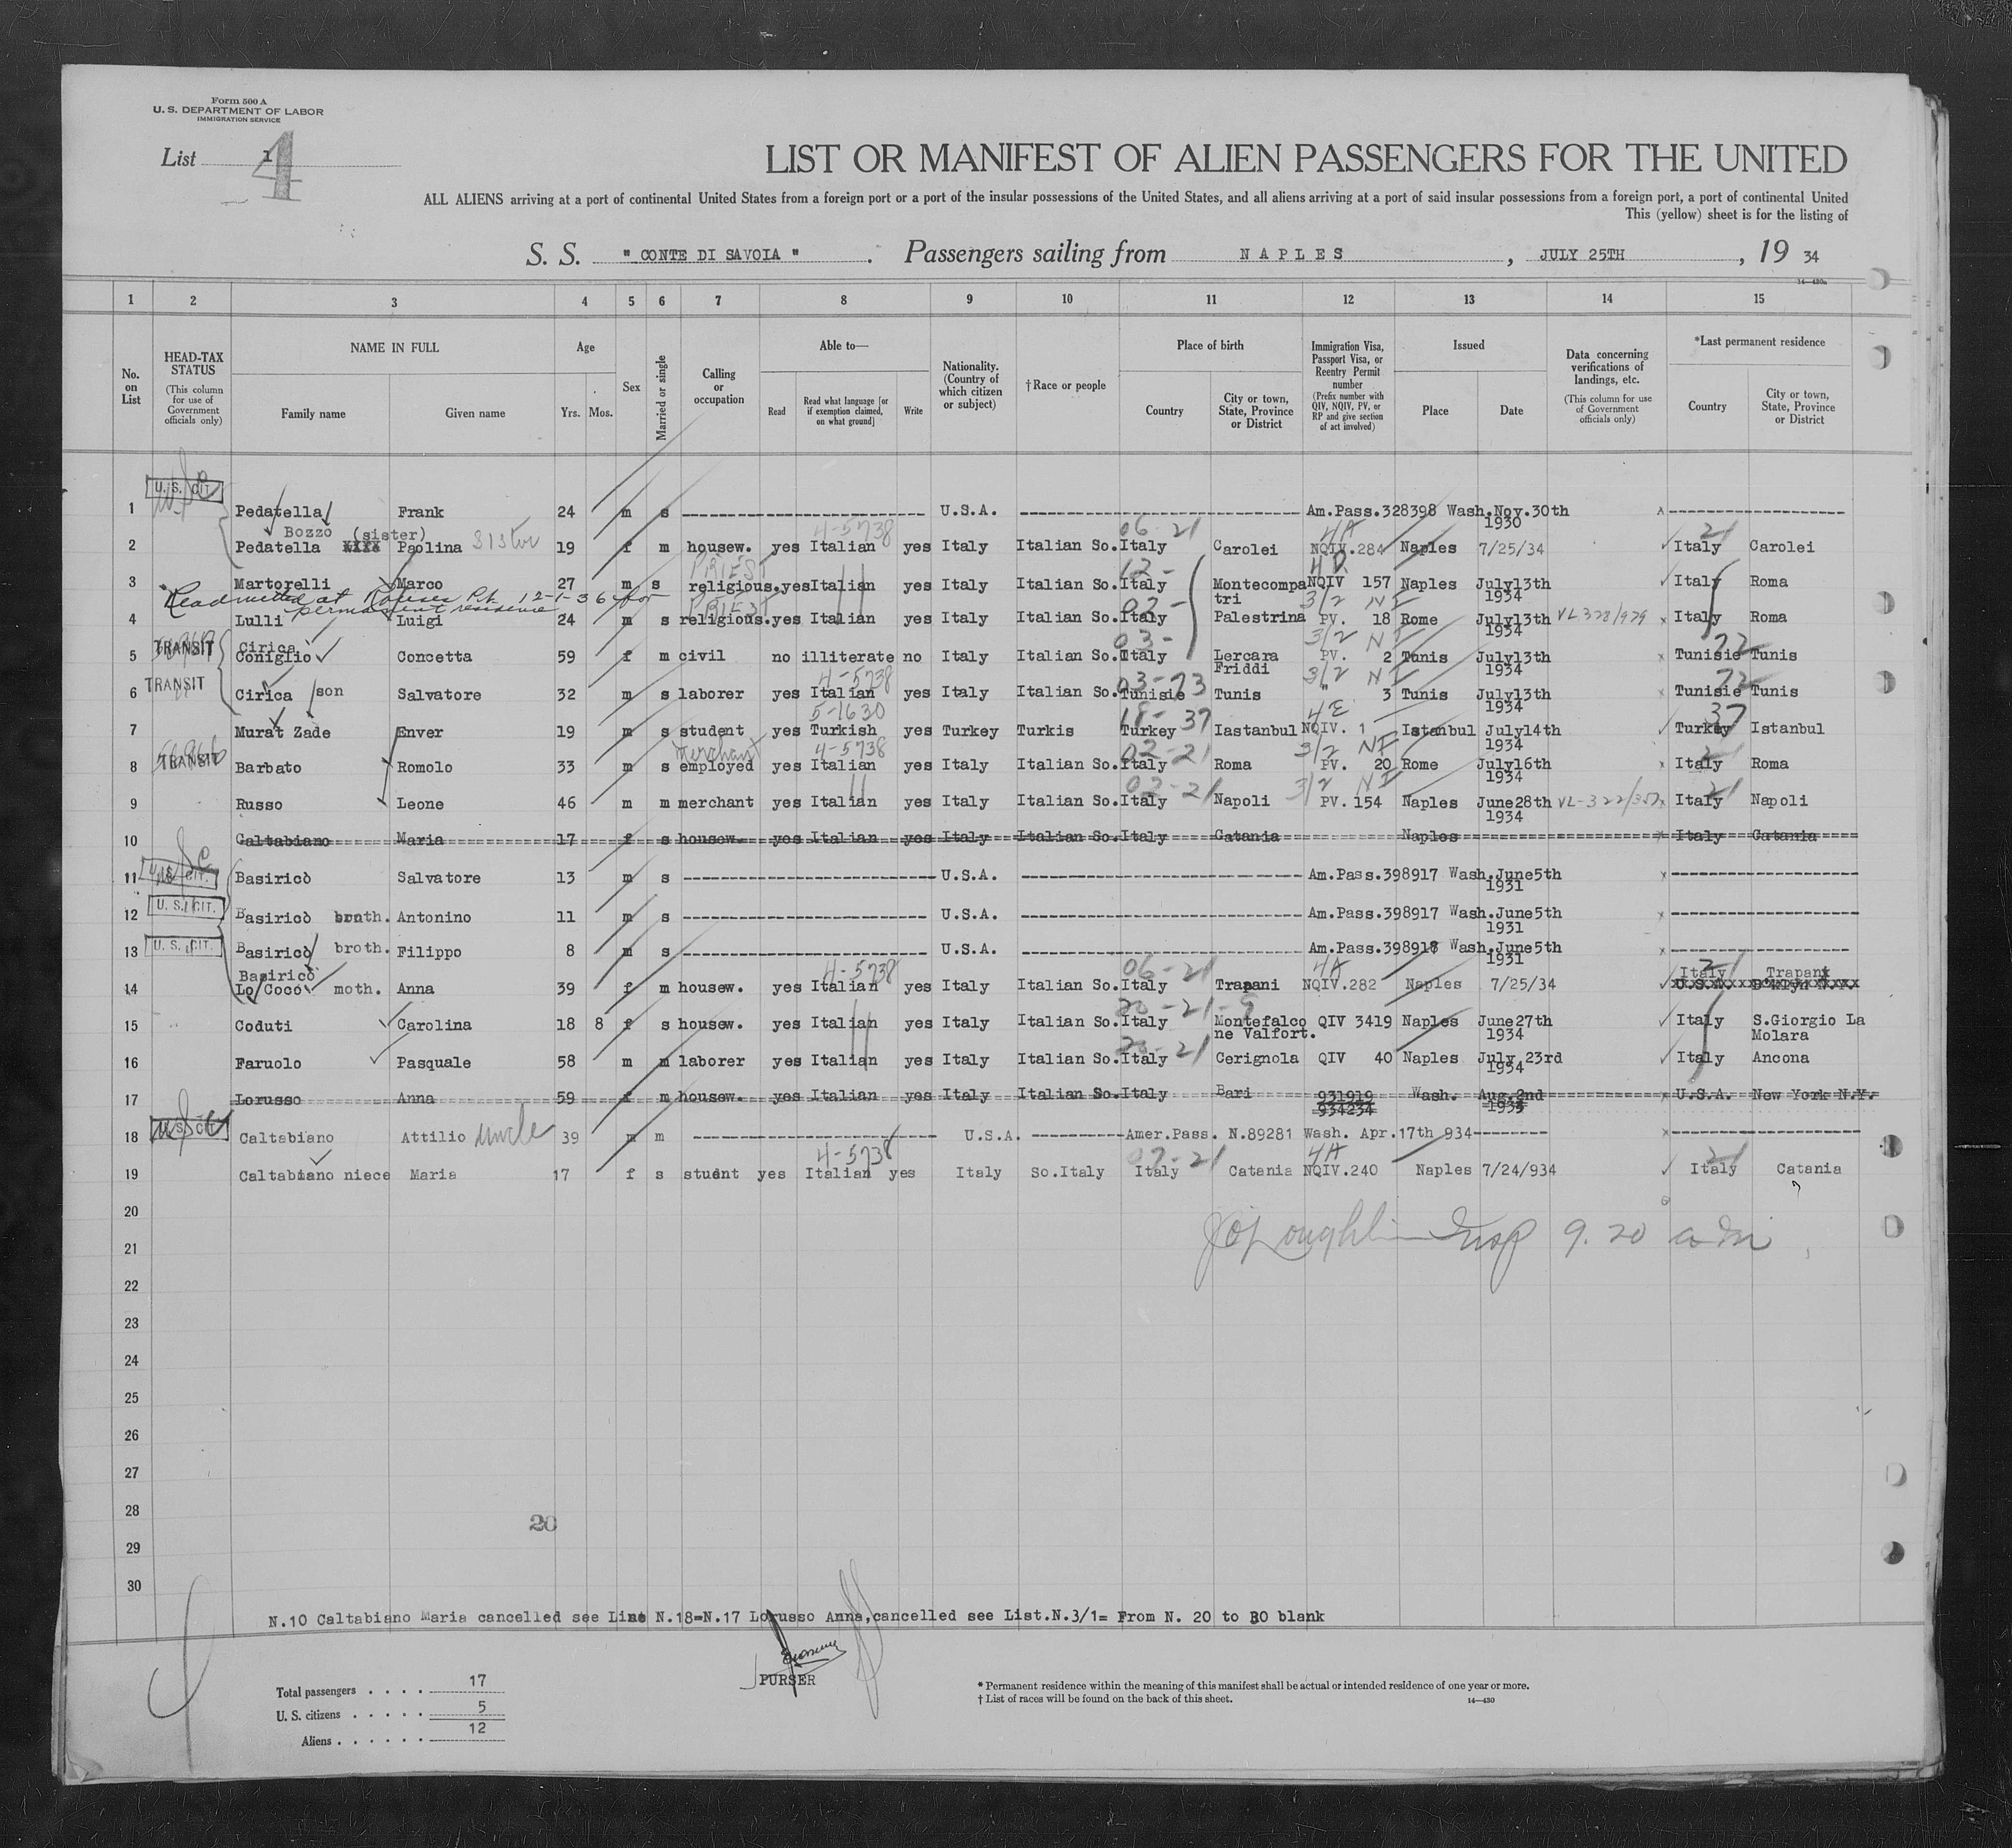 Form 500 A
U. S. DEPARTMENT OF LABOR
IMMIGRATION SERVICE
List 1
4
LIST OR MANIFEST OF ALIEN PASSENGERS FOR THE UNITED
ALL ALIENS arriving at a port of continental United States from a foreign port or a port of the insular possessions of the United States, and all aliens arriving at a port of said insular possessions from a foreign port, a port of continental United
This (yellow) sheet is for the listing of
S. S. " CONTE DI SAVOIA " . Passengers sailing from NAPLES , JULY 25TH , 19 34
14—430a
1 2 3 4 5 6 7 8 9 10 11 12 13 14 15
No. on List
HEAD-TAX STATUS (This column for use of Government officials only)
NAME IN FULL
Family name Given name
Age
Yrs. Mos.
Sex
Married or single
Calling or occupation
Able to—
Read
Read what language [or if exemption claimed, on what ground]
Write
Nationality. (Country of which citizen or subject)
†Race or people
Place of birth
Country
City or town, State, Province or District
Immigration Visa, Passport Visa, or Reentry Permit number (Prefix number with QIV, NQIV, PV, or RP and give section of act involved)
Issued
Place Date
Data concerning verifications of landings, etc. (This column for use of Government officials only)
*Last permanent residence
Country
City or town, State, Province or District
U. S. CIT.
1 Pedatella Frank 24 m s U.S.A. Am.Pass.328398 Wash.Nov.30th 1930
Bozzo (sister) 4-5738 06-21 4A 21
2 Pedatella XXXX Paolina sister 19 f m housew. yes Italian yes Italy Italian So. Italy Carolei NQIV.284 Naples 7/25/34 Italy Carolei
PRIEST 12- 4D
3 Martorelli Marco 27 m s religious. yes Italian yes Italy Italian So. Italy Montecompatri NQIV 157 Naples July13th 1934 Italy Roma
Readmitted at Rouses Pt. 12-1-36 for permanent residence
PRIEST 02- 3/2 NI
4 Lulli Luigi 24 m s religious. yes Italian yes Italy Italian So. Italy Palestrina PV. 18 Rome July13th 1934 VL 328/979 Italy Roma
TRANSIT Cirica 03- 3/2 NI 72
5 Coniglio Concetta 59 f m civil no illiterate no Italy Italian So. Italy Lercara Friddi PV. 2 Tunis July13th 1934 Tunisie Tunis
TRANSIT 4-5738 03-73 3/2 NI 72
6 Cirica son Salvatore 32 m s laborer yes Italian yes Italy Italian So. Tunisie Tunis " 3 Tunis July13th 1934 Tunisie Tunis
5-1630 18-37 4E 37
7 Murat Zade Enver 19 m s student yes Turkish yes Turkey Turkis Turkey Iastanbul NQIV. 1 Istanbul July14th 1934 Turkey Istanbul
TRANSIT merchant 4-5738 02-21 3/2 NI 21
8 Barbato Romolo 33 m s employed yes Italian yes Italy Italian So. Italy Roma PV. 20 Rome July16th 1934 Italy Roma
02-21 3/2 NI 21
9 Russo Leone 46 m m merchant yes Italian yes Italy Italian So. Italy Napoli PV. 154 Naples June28th 1934 Italy Napoli
10 Caltabiano Maria 17 f s housew. yes Italian yes Italy Italian So. Italy Catania Naples Italy Catania
U. S. CIT.
11 Basiricò Salvatore 13 m s U.S.A. Am.Pass.398917 Wash.June5th 1931
U. S. CIT.
12 Basiricò broth. Antonino 11 m s U.S.A. Am.Pass.398917 Wash.June5th 1931
U. S. CIT.
13 Basiricò broth. Filippo 8 m s U.S.A. Am.Pass.398918 Wash.June5th 1931
Basiricò 4-5738 06-21 4A 21 Italy Trapani
14 Lo Coco moth. Anna 39 f m housew. yes Italian yes Italy Italian So. Italy Trapani NQIV.282 Naples 7/25/34
15 Coduti Carolina 18 8 f s housew. yes Italian yes Italy Italian So. Italy Montefalco ne Valfort. QIV 3419 Naples June27th 1934 Italy S.Giorgio La Molara
20-21
16 Faruolo Pasquale 58 m m laborer yes Italian yes Italy Italian So. Italy Cerignola QIV 40 Naples July 23rd 1934 Italy Ancona
17 Lorusso Anna 59 f m housew. yes Italian yes Italy Italian So. Italy Bari 931919 934234 Wash. Aug.2nd U.S.A. New York N.Y.
U. S. CIT.
18 Caltabiano Attilio uncle 39 m m U.S.A. Amer.Pass. N.89281 Wash. Apr.17th 934
4-5738 07-21 4A 21
19 Caltabiano niece Maria 17 f s studnt yes Italian yes Italy So.Italy Italy Catania NQIV.240 Naples 7/24/934 Italy Catania
20
J O'Loughlin Insp 9.20 am
21
22
23
24
25
26
27
28
20
29
30
N.10 Caltabiano Maria cancelled see Line N.18=N.17 Lorusso Anna,cancelled see List.N.3/1= From N. 20 to 30 blank
PURSER
Total passengers . . . . 17
U. S. citizens . . . . . 5
Aliens . . . . . . 12
* Permanent residence within the meaning of this manifest shall be actual or intended residence of one year or more.
† List of races will be found on the back of this sheet. 14—430